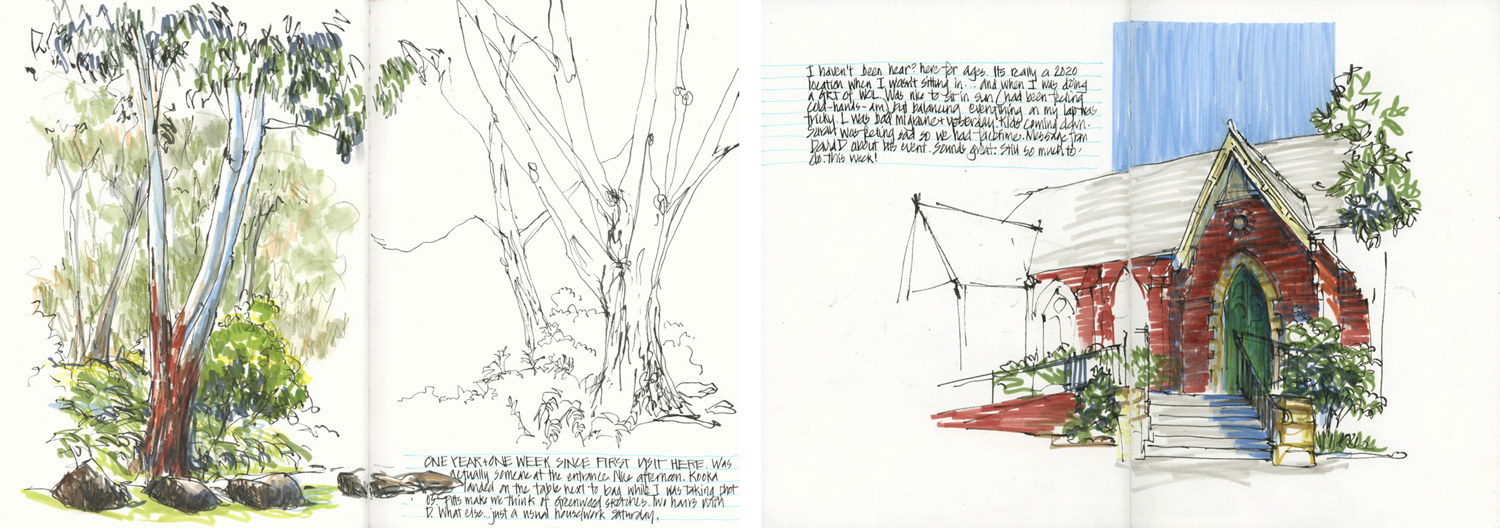 ONE YEAR+ONE WEEK SINCE FIRST VISIT HERE. Was
actually someone at the entrance. Nice afternoon. Kooka
landed on the table next to bag while I was taking phot
os- Pitts make me think of Greenwood sketches. Two hours with
D. What else...just a usual housework Saturday.
I haven't been hear? here for ages. Its really a 2020
location when I wasn't sitting in... and when I was doing
a ART of WOL. Was nice to sit in sun (had been feeling
cold-hands-am) but balancing everything on my lap was
tricky. I was bad migraine + yesterday. Kids coming down.
Sarah was feeling sad so we had facetime. Message from
David D about his event. Sounds great. Still so much to
do this week!